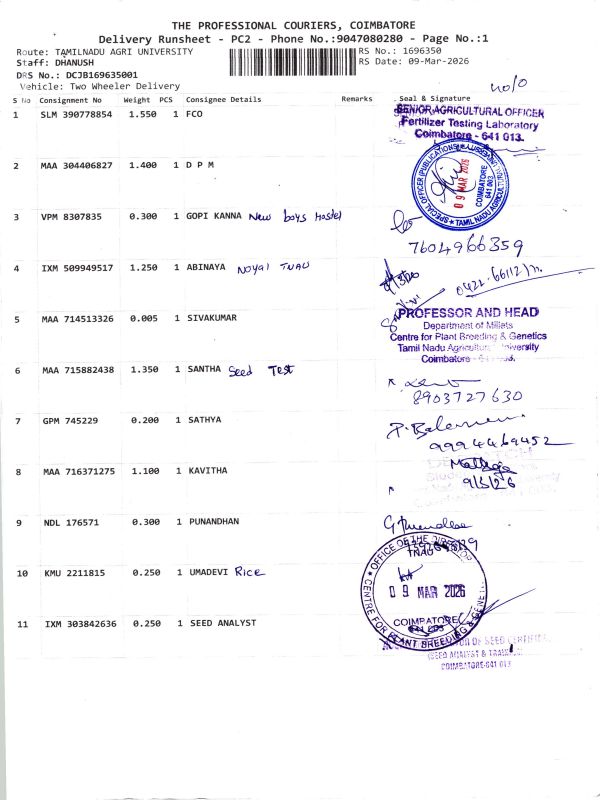 THE PROFESSIONAL COURIERS, COIMBATORE
Delivery Runsheet - PC2 - Phone No.:9047080280 - Page No.:1
Route: TAMILNADU AGRI UNIVERSITY
RS No.: 1696350
Staff: DHANUSH
RS Date: 09-Mar-2026
DRS No.: DCJB169635001
Vehicle: Two Wheeler Delivery
S No Consignment No Weight PCS Consignee Details Remarks Seal & Signature
1 SLM 390778854 1.550 1 FCO
SENIOR AGRICULTURAL OFFICER
Fertilizer Testing Laboratory
Coimbatore - 641 013.
2 MAA 304406827 1.400 1 D P M
SPECIAL OFFICER (PUBLICATIONS)
09 MAR 2026
COIMBATORE
641 003
TAMIL NADU AGRICULTURAL
3 VPM 8307835 0.300 1 GOPI KANNA New boys Hostel
7604966359
4 IXM 509949517 1.250 1 ABINAYA Noyal TNAU
0422-6611211
5 MAA 714513326 0.005 1 SIVAKUMAR
PROFESSOR AND HEAD
Department of Millets
Centre for Plant Breeding & Genetics
Tamil Nadu Agricultural University
Coimbatore - 641 003.
6 MAA 715882438 1.350 1 SANTHA Seed Test
8903727630
7 GPM 745229 0.200 1 SATHYA
9994469452
8 MAA 716371275 1.100 1 KAVITHA
9/3/26
9 NDL 176571 0.300 1 PUNANDHAN
10 KMU 2211815 0.250 1 UMADEVI Rice
OFFICE OF THE DIRECTOR
TNAU
09 MAR 2026
COIMBATORE
641 003
CENTRE FOR PLANT BREEDING & GENETI
11 IXM 303842636 0.250 1 SEED ANALYST
OF SEED CERTIFIC
(SEED ANALYST & TRAINING)
COIMBATORE-641 013